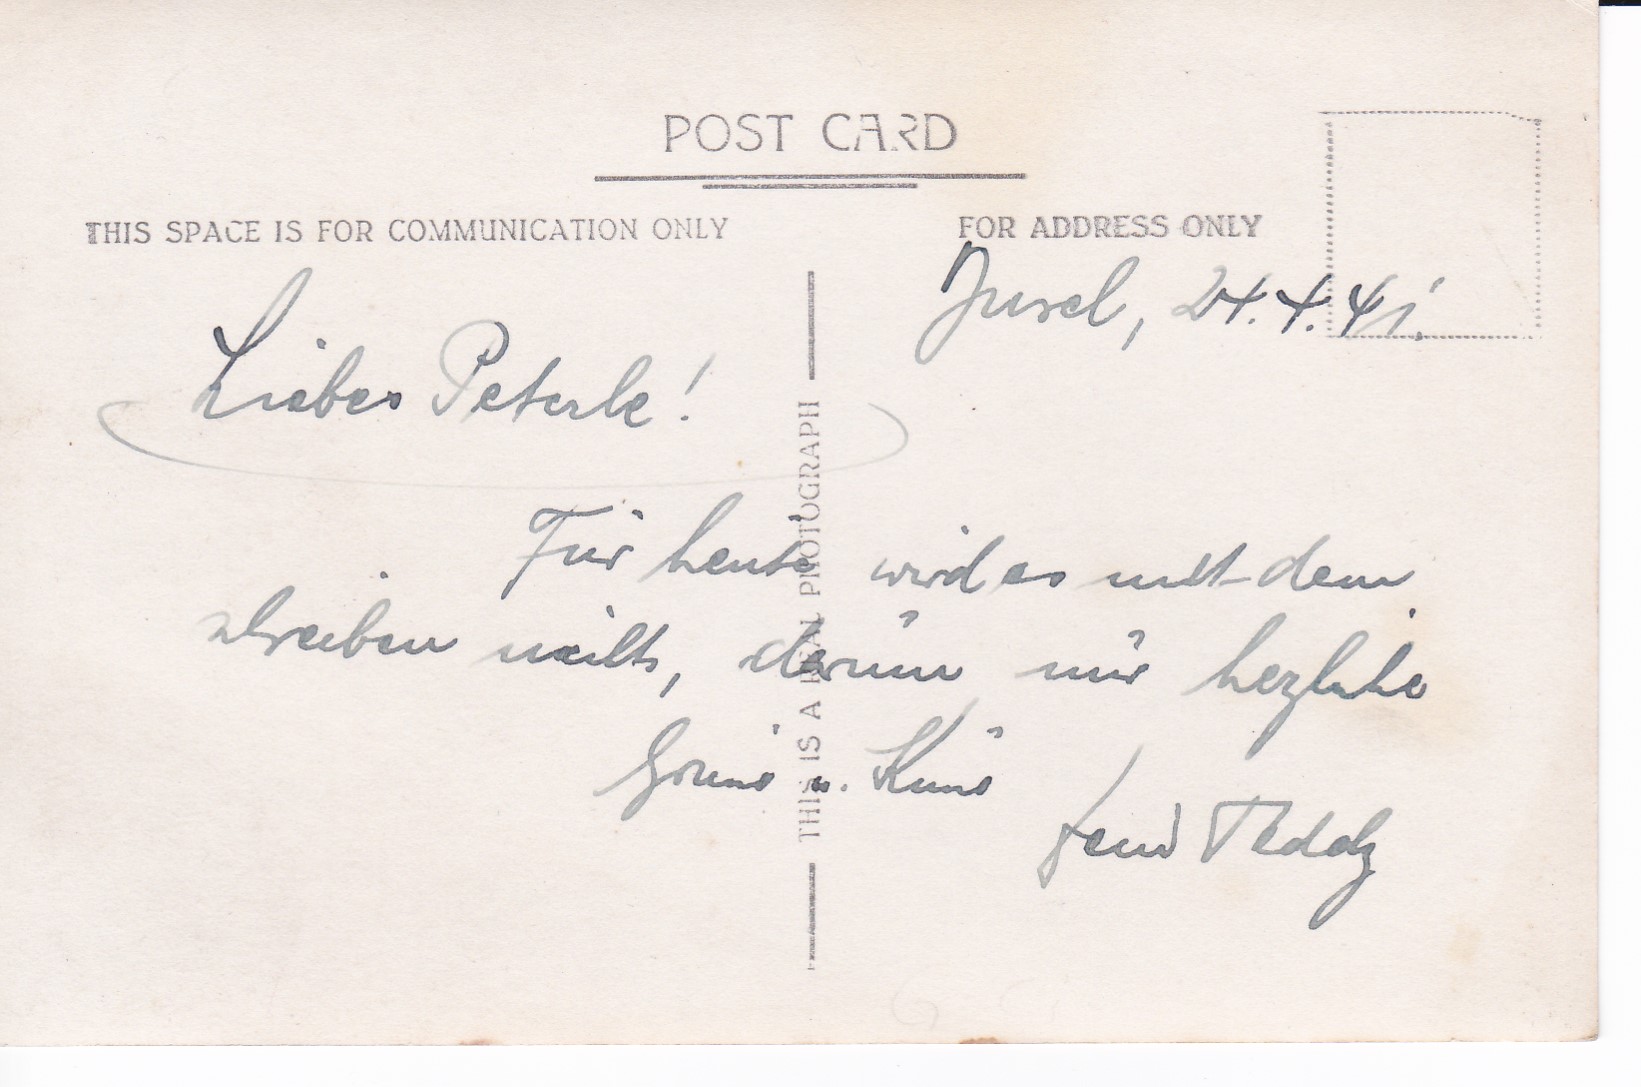 POST CARD
THIS SPACE IS FOR COMMUNICATION ONLY
FOR ADDRESS ONLY
Insel, 24.4.41.
Liebes Peterle!
Für heute wird es mit dem
schreiben nichts, darum nur herzliche
Grüße u. Küsse
Dein Teddy
THIS IS A REAL PHOTOGRAPH